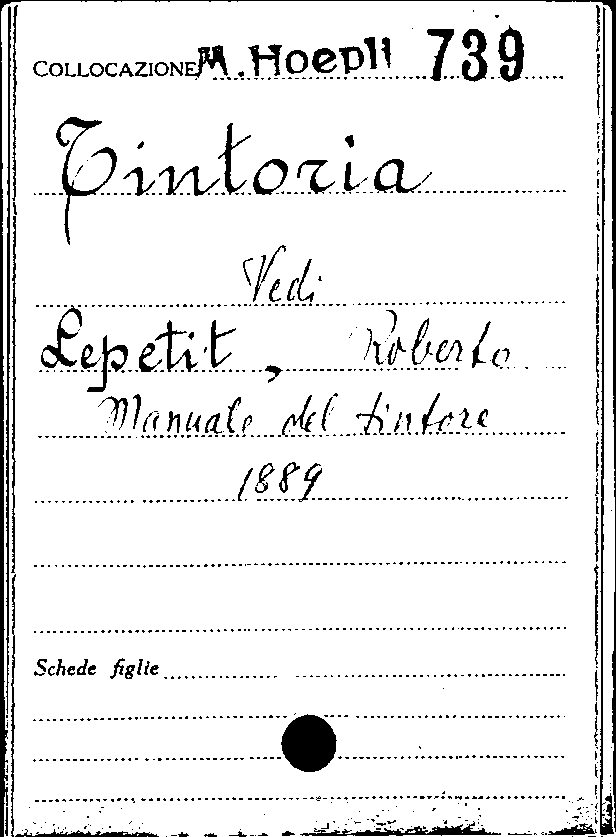 COLLOCAZIONE M. Hoepli 739
Tintoria
Vedi
Lepetit, Roberto
Manuale del tintore
1889
Schede figlie